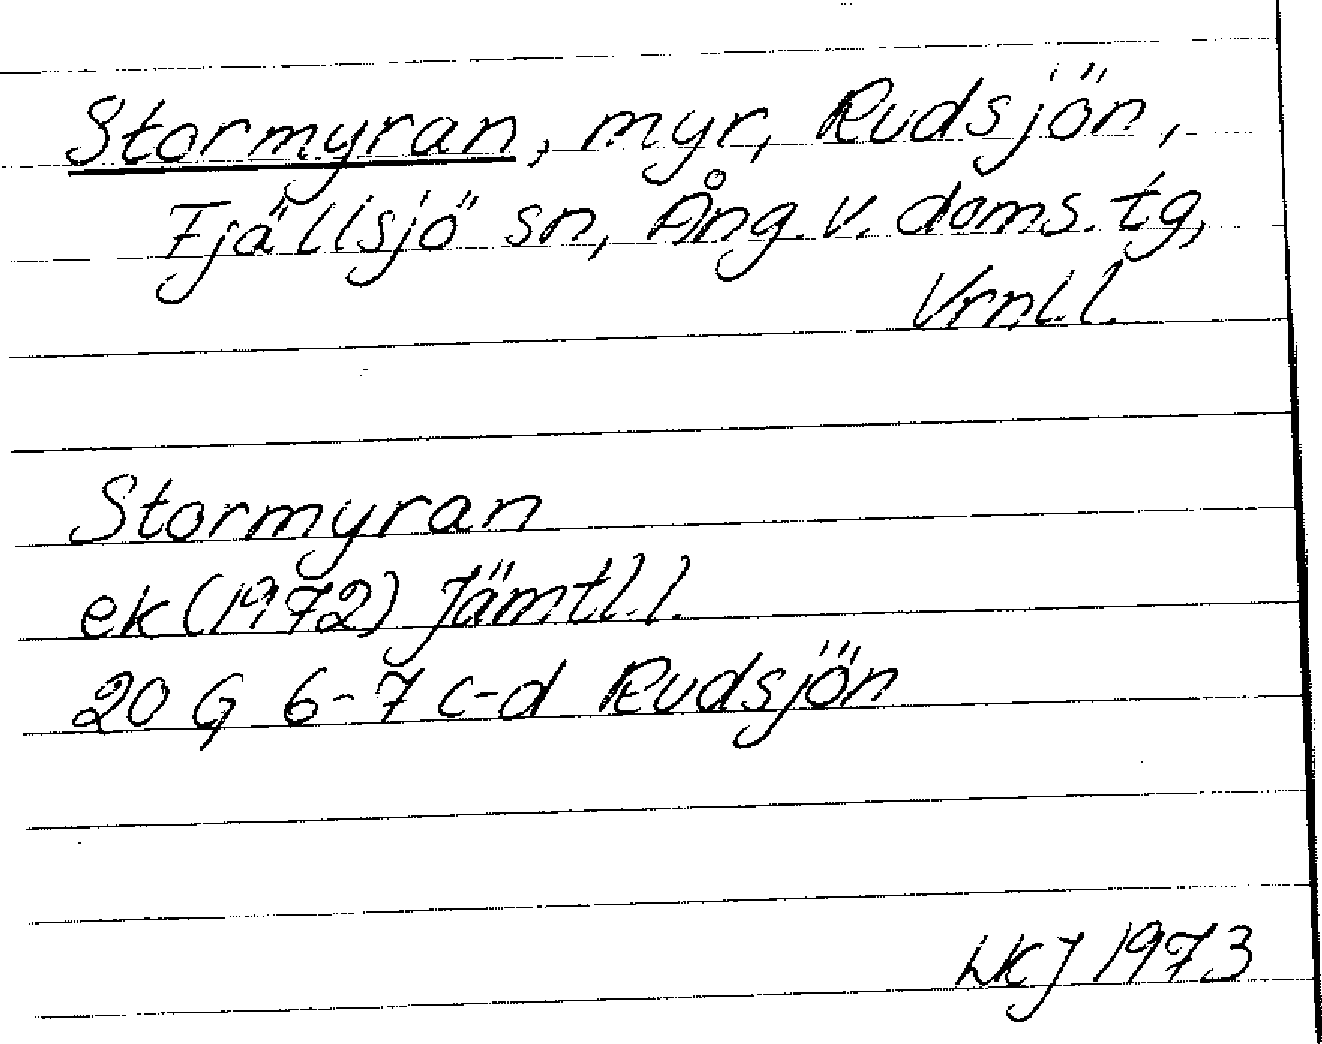 Stormyran, myr, Rudsjön,
Fjällsjö sn, Ång. v. doms. tg,
Vrnl.l.
Stormyran
ek (1972) Jämtl.l.
20 G 6-7 c-d Rudsjön
LKJ 1973